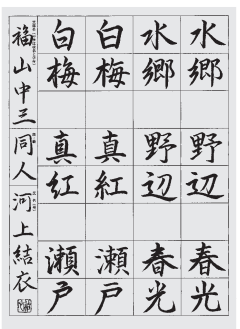 水郷 野辺 春光
水郷 野辺 春光
白梅 真紅 瀬戸
白梅 真紅 瀬戸
福山中三 同人 河上結衣